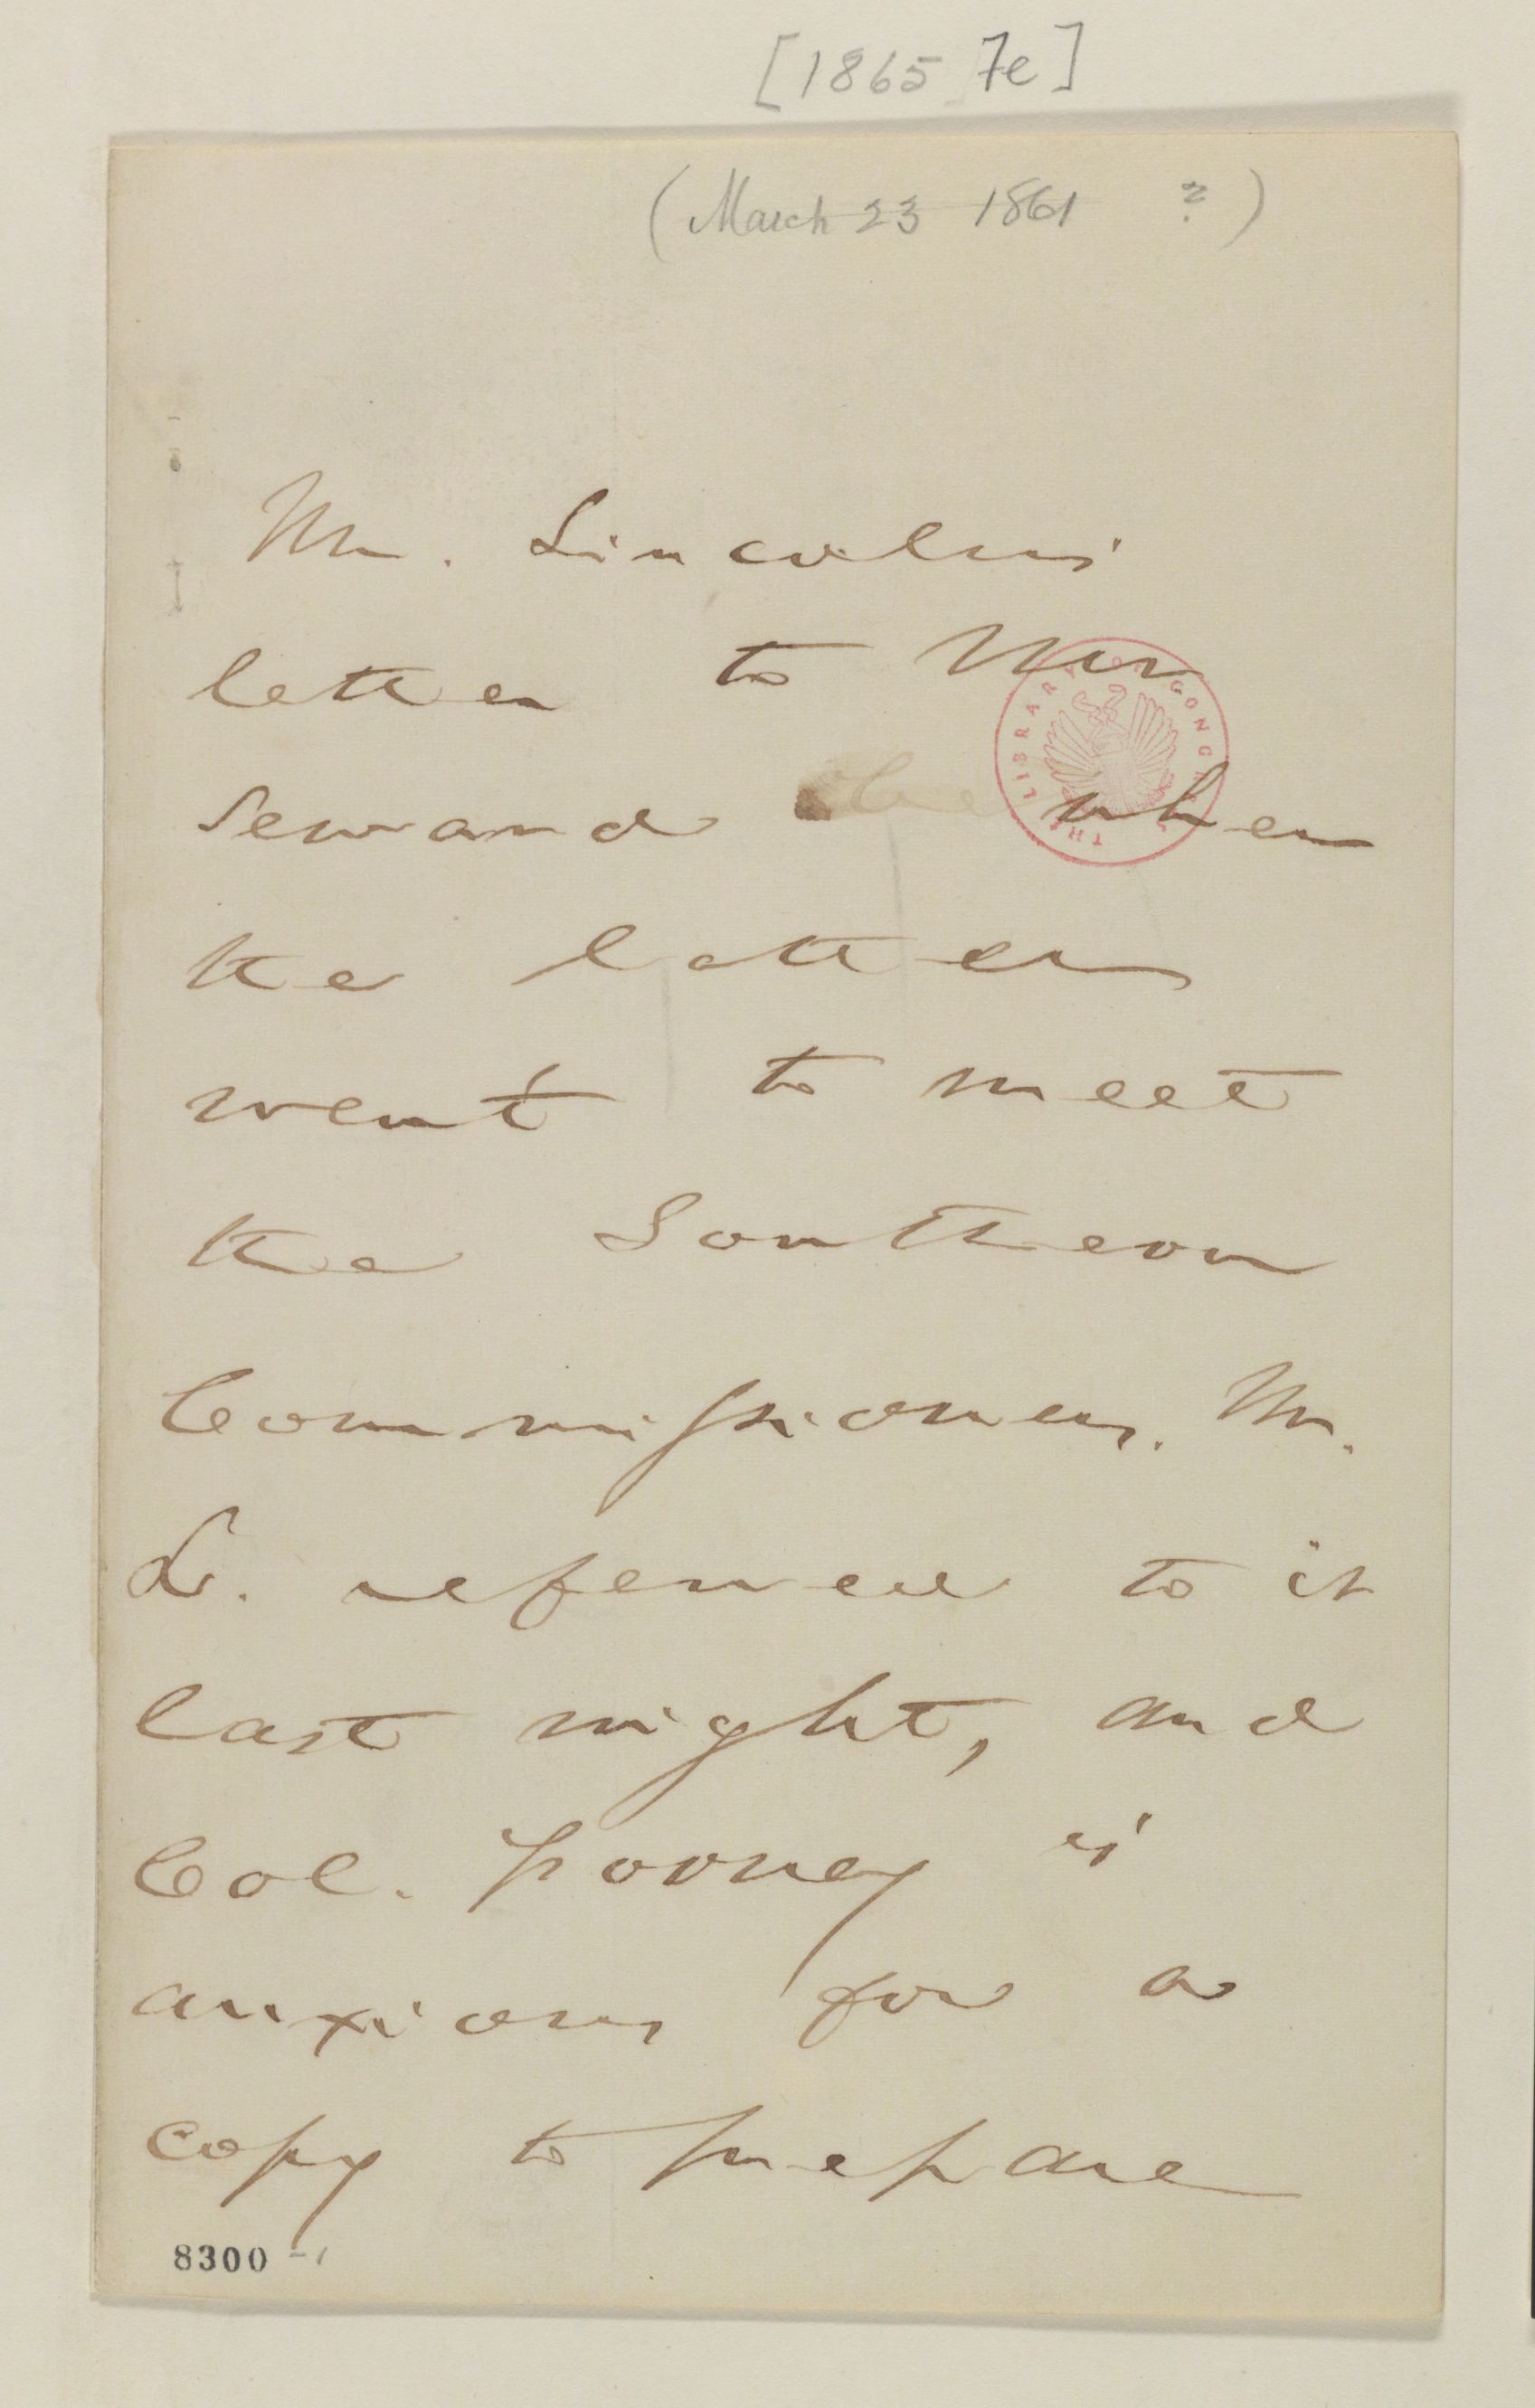 [1865 Fe]
(March 23 1861 ?)
Mr. Lincoln's
letter to Mr
Seward when
the latter
went to meet
the Southern
Commissioners. Mr.
L. referred to it
last night, and
Col. Forney is
anxious for a
copy to prepare
THE LIBRARY OF CONGRESS
8300